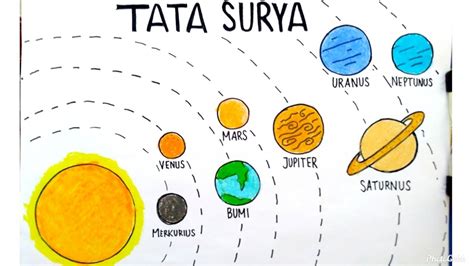 TATA SURYA
URANUS
NEPTUNUS
MARS
VENUS
JUPITER
SATURNUS
MERKURIUS
BUMI